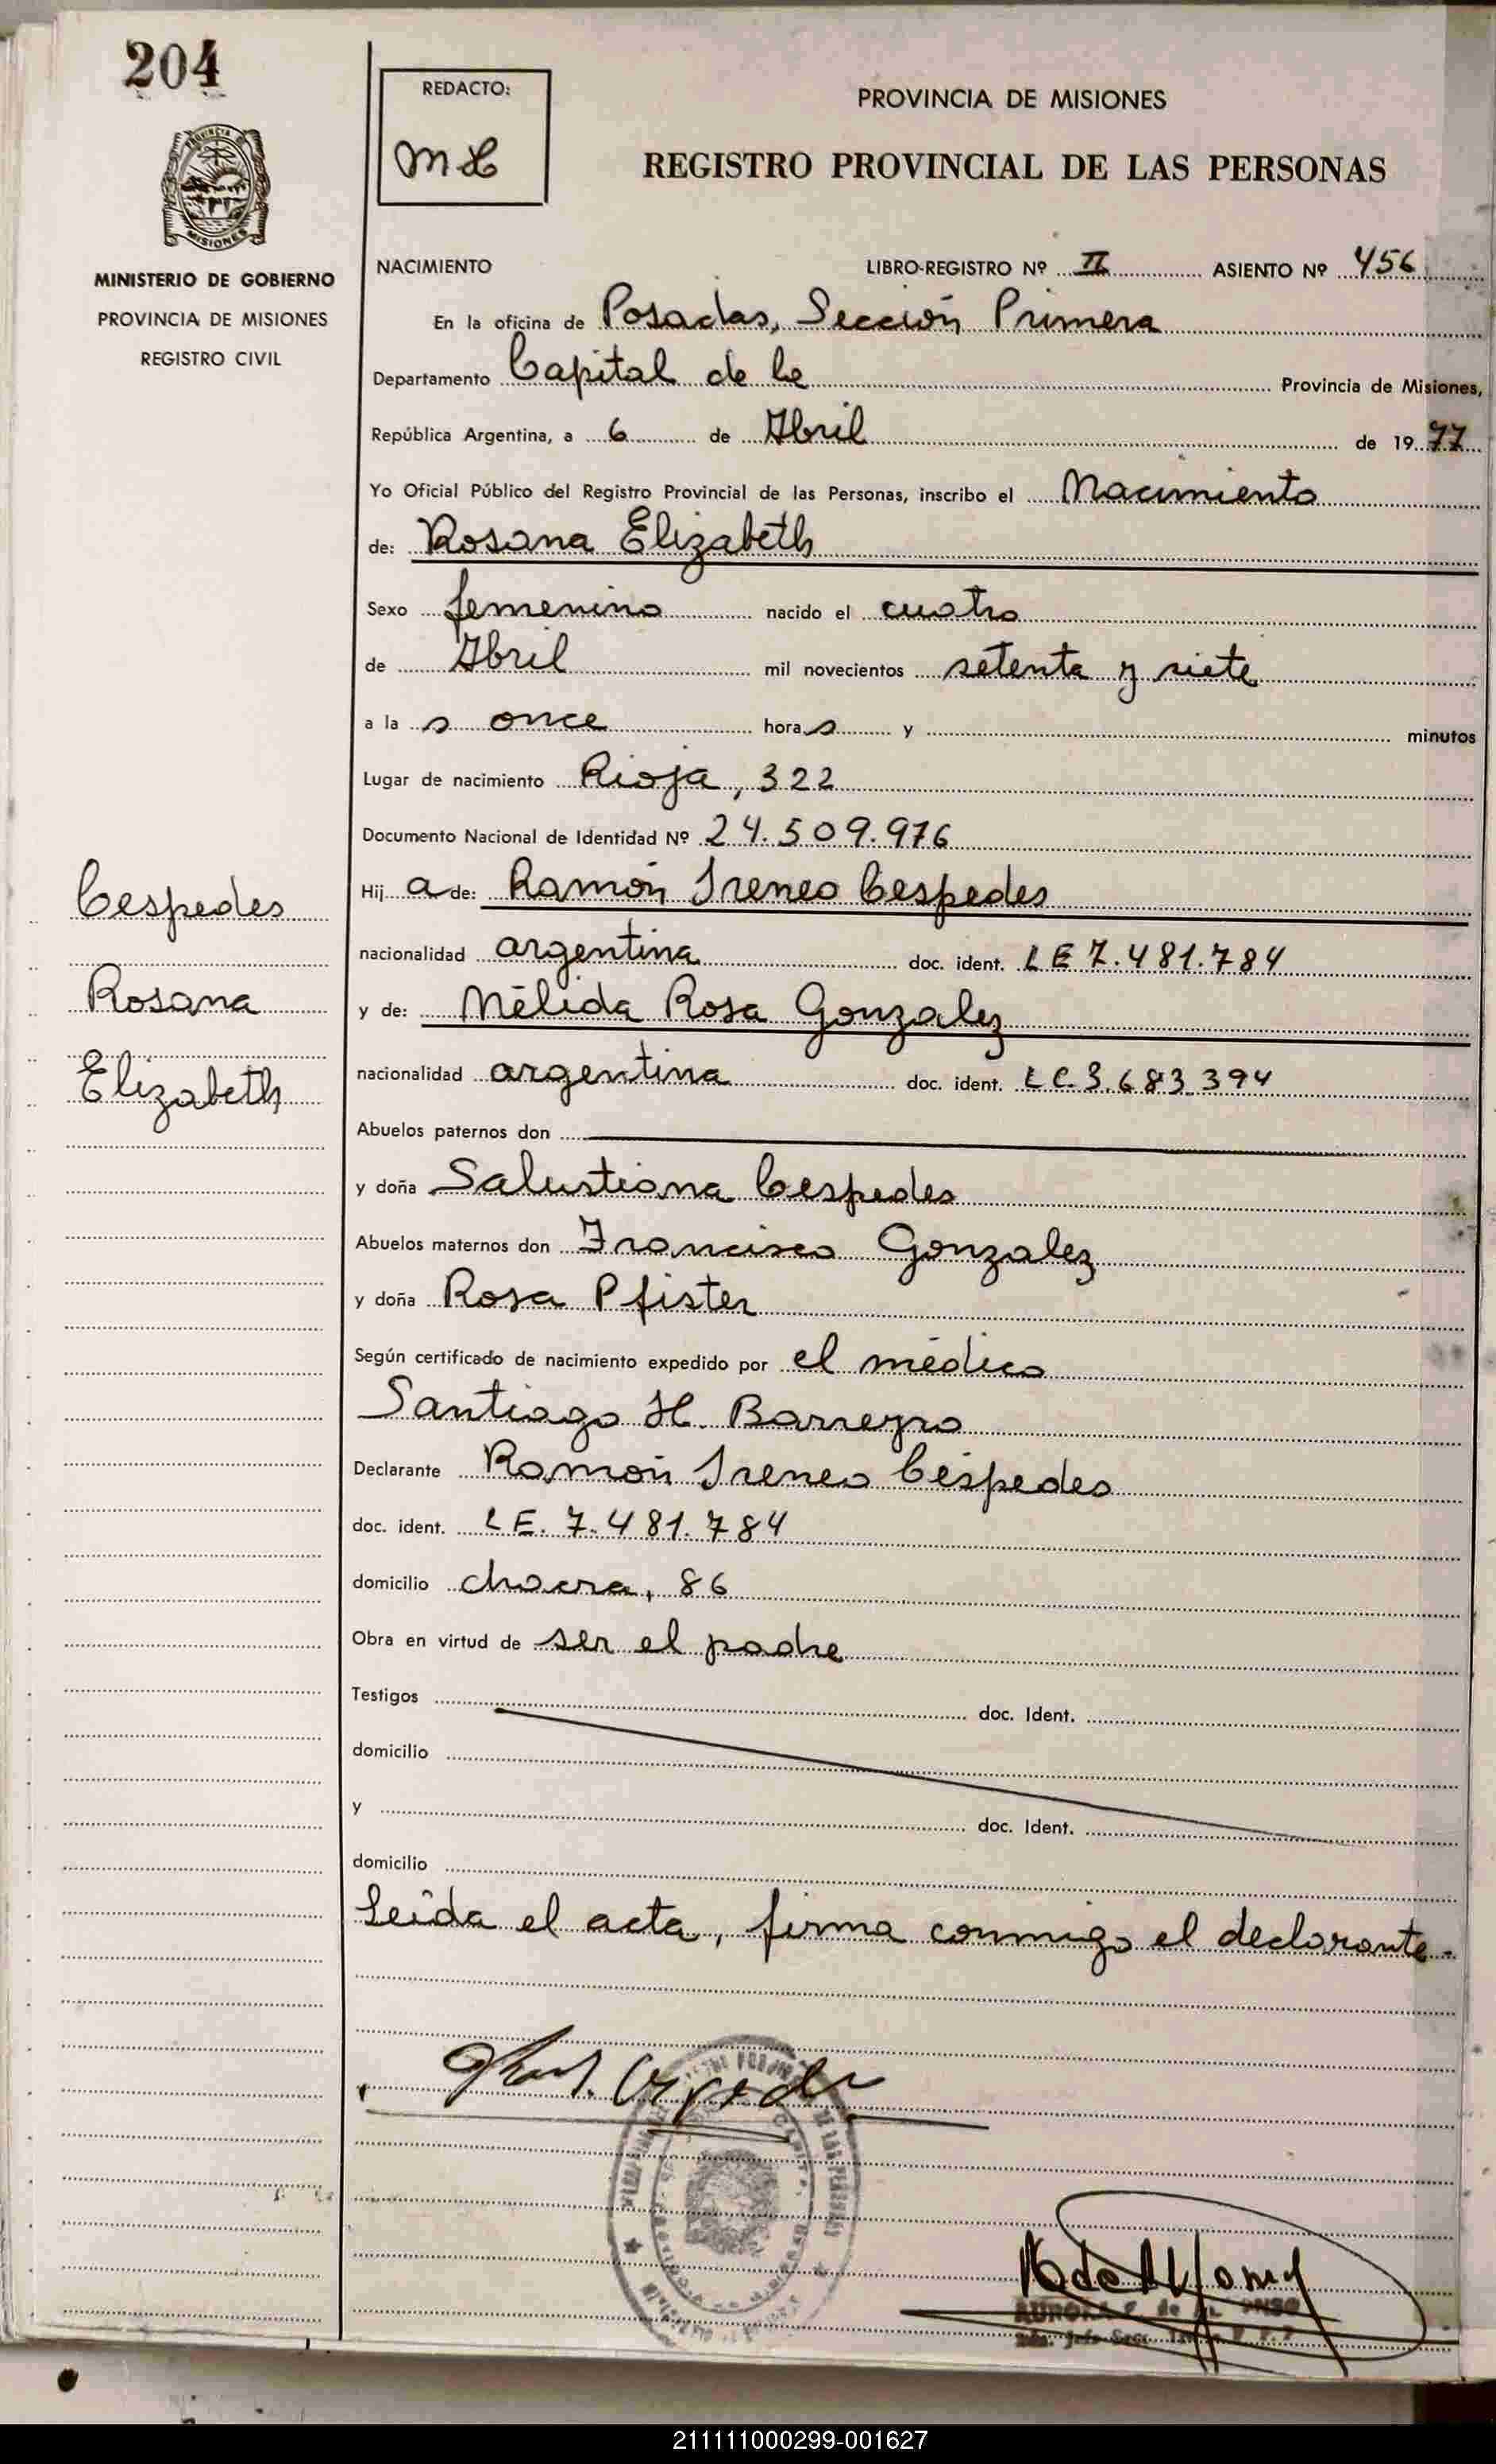 204
REDACTO:
MH
PROVINCIA DE MISIONES
REGISTRO PROVINCIAL DE LAS PERSONAS
MISIONES
MINISTERIO DE GOBIERNO
PROVINCIA DE MISIONES
REGISTRO CIVIL
NACIMIENTO LIBRO-REGISTRO Nº II ASIENTO Nº 456
En la oficina de Posadas, Sección Primera
Departamento Capital de la Provincia de Misiones,
República Argentina, a 6 de Abril de 1977
Yo Oficial Público del Registro Provincial de las Personas, inscribo el Nacimiento
de: Rosana Elizabeth
Sexo femenino nacido el cuatro
de Abril mil novecientos setenta y siete
a las once horas y minutos
Lugar de nacimiento Rioja, 322
Documento Nacional de Identidad Nº 24.509.976
Cespedes
Rosana
Elizabeth
Hija de: Ramón Ireneo Cespedes
nacionalidad argentina doc. ident. LE 7.481.784
y de: Nélida Rosa Gonzalez
nacionalidad argentina doc. ident. LC.3.683.394
Abuelos paternos don
y doña Salustiana Cespedes
Abuelos maternos don Francisco Gonzalez
y doña Rosa Pfister
Según certificado de nacimiento expedido por el médico
Santiago H. Barreyro
Declarante Ramón Ireneo Céspedes
doc. ident. LE. 7.481.784
domicilio chacra, 86
Obra en virtud de ser el padre
Testigos doc. Ident.
domicilio
y doc. Ident.
domicilio
Leída el acta, firma conmigo el declarante.-
211111000299-001627